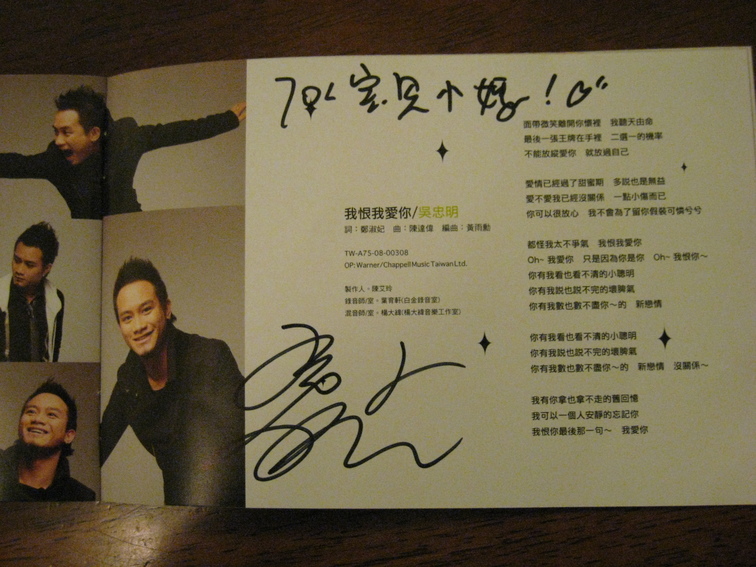 宝貝小媽！
我恨我愛你/吳忠明
詞：鄭淑妃　曲：陳達偉　編曲：黃雨勳
TW-A75-08-00308
OP: Warner/Chappell Music Taiwan Ltd.
製作人。陳艾玲
錄音師/室。葉育軒(白金錄音室)
混音師/室。楊大緯(楊大緯音樂工作室)
面帶微笑離開你懷裡　我聽天由命
最後一張王牌在手裡　二選一的機率
不能放縱愛你　就放過自己
愛情已經過了甜蜜期　多說也是無益
愛不愛我已經沒關係　一點小傷而已
你可以很放心　我不會為了留你假裝可憐兮兮
都怪我太不爭氣　我恨我愛你
Oh~ 我愛你　只是因為你是你　Oh~ 我恨你~
你有我看也看不清的小聰明
你有我說也說不完的壞脾氣
你有我數也數不盡你~的　新戀情
你有我看也看不清的小聰明
你有我說也說不完的壞脾氣
你有我數也數不盡你~的　新戀情　沒關係~
我有你拿也拿不走的舊回憶
我可以一個人安靜的忘記你
我恨你最後那一句~　我愛你